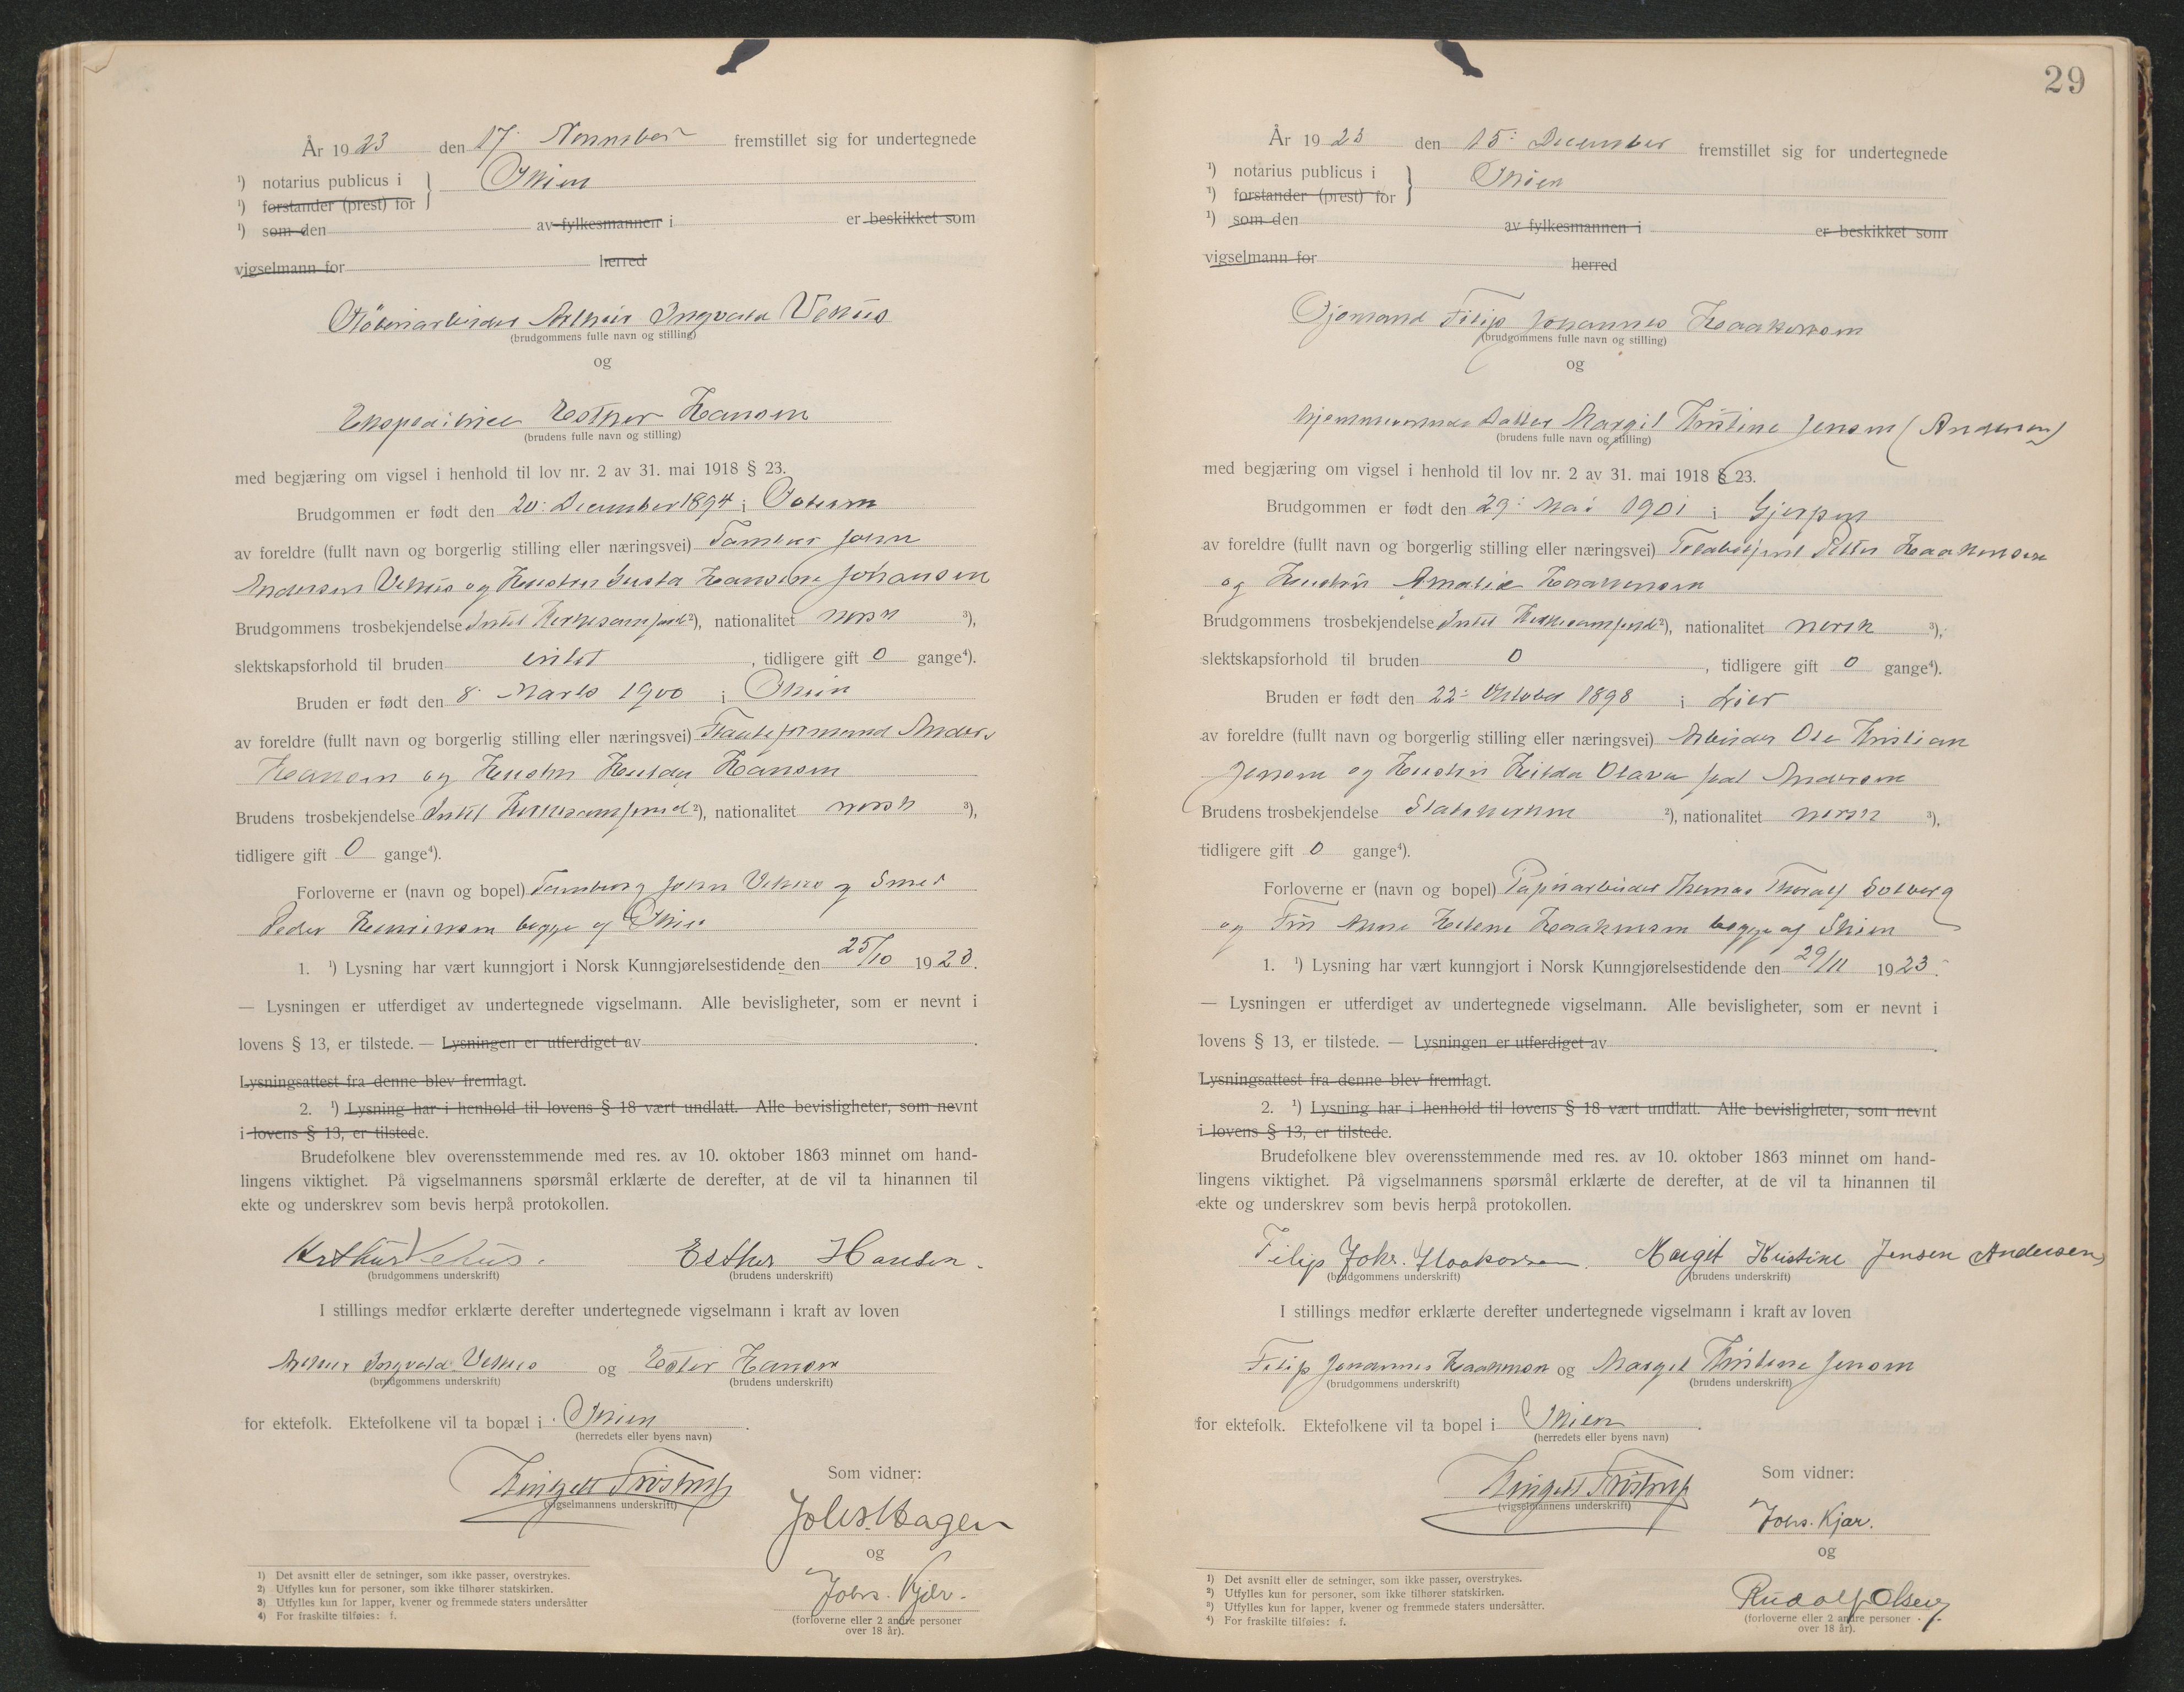 År 1923 den 17. November fremstillet sig for undertegnede
¹) notarius publicus i } Skien
¹) forstander (prest) for
¹) som den av fylkesmannen i er beskikket som
vigselmann for herred
Arthur Ingvald Vekus
(brudgommens fulle navn og stilling)
og
Ekspeditrice Esther Hansen
(brudens fulle navn og stilling)
med begjæring om vigsel i henhold til lov nr. 2 av 31. mai 1918 § 23.
Brudgommen er født den 20. December 1894 i
av foreldre (fullt navn og borgerlig stilling eller næringsvei) Tambur John
Andersen Vekus og Hustru Gusta Hansine Johansen
Brudgommens trosbekjendelse Intet Kirkesamfund ²), nationalitet norsk ³),
slektskapsforhold til bruden intet, tidligere gift 0 gange⁴).
Bruden er født den 8. Marts 1900 i Skien
av foreldre (fullt navn og borgerlig stilling eller næringsvei) Anders
Hansen og Hustru Hulda Hansen
Brudens trosbekjendelse Intet Kirkesamfund ²), nationalitet norsk ³),
tidligere gift 0 gange⁴).
Forloverne er (navn og bopel) John Vekus og Smed
Peder Henriksen begge af Skien
1. ¹) Lysning har vært kunngjort i Norsk Kunngjørelsestidende den 25/10 1923.
— Lysningen er utferdiget av undertegnede vigselmann. Alle bevisligheter, som er nevnt i
lovens § 13, er tilstede. — Lysningen er utferdiget av .
Lysningsattest fra denne blev fremlagt.
2. ¹) Lysning har i henhold til lovens § 18 vært undlatt. Alle bevisligheter, som nevnt
i lovens § 13, er tilstede.
Brudefolkene blev overensstemmende med res. av 10. oktober 1863 minnet om hand-
lingens viktighet. På vigselmannens spørsmål erklærte de derefter, at de vil ta hinannen til
ekte og underskrev som bevis herpå protokollen.
Arthur Vekus. Esther Hansen.
(brudgommens underskrift) (brudens underskrift)
I stillings medfør erklærte derefter undertegnede vigselmann i kraft av loven
Arthur Ingvald Vekus og Ester Hansen
(brudgommens underskrift) (brudens underskrift)
for ektefolk. Ektefolkene vil ta bopæl i Skien.
(herredets eller byens navn)
Trøstrup
(vigselmannens underskrift)
Som vidner:
Johs. Hagen
og
Johs. Kjær.
(forloverne eller 2 andre personer
over 18 år).
1) Det avsnitt eller de setninger, som ikke passer, overstrykes.
2) Utfylles kun for personer, som ikke tilhører statskirken.
3) Utfylles kun for lapper, kvener og fremmede staters undersåtter
4) For fraskilte tilføies: f.
29
År 1923 den 15. December fremstillet sig for undertegnede
¹) notarius publicus i } Skien
¹) forstander (prest) for
¹) som den av fylkesmannen i er beskikket som
vigselmann for herred
Sjømand Filip Johannes Haakonsen
(brudgommens fulle navn og stilling)
og
hjemmeværende Datter Margit Kristine Jensen (Andersen)
(brudens fulle navn og stilling)
med begjæring om vigsel i henhold til lov nr. 2 av 31. mai 1918 § 23.
Brudgommen er født den 29. Mai 1901 i Gjerpen
av foreldre (fullt navn og borgerlig stilling eller næringsvei) Petter Haakonsen
og Hustru Amalie Haakonsen
Brudgommens trosbekjendelse Intet Kirkesamfund ²), nationalitet norsk ³),
slektskapsforhold til bruden 0, tidligere gift 0 gange⁴).
Bruden er født den 22. Oktober 1898 i Lier
av foreldre (fullt navn og borgerlig stilling eller næringsvei) Arbeider Ole Kristian
Jensen og Hustru Hilda Olava født Andersen
Brudens trosbekjendelse Statskirken ²), nationalitet norsk ³),
tidligere gift 0 gange⁴).
Forloverne er (navn og bopel) Papirarbeider Thomas Thoralf Solberg
og Fru Anne Helene Haakonsen begge af Skien
1. ¹) Lysning har vært kunngjort i Norsk Kunngjørelsestidende den 29/11 1923.
— Lysningen er utferdiget av undertegnede vigselmann. Alle bevisligheter, som er nevnt i
lovens § 13, er tilstede. — Lysningen er utferdiget av .
Lysningsattest fra denne blev fremlagt.
2. ¹) Lysning har i henhold til lovens § 18 vært undlatt. Alle bevisligheter, som nevnt
i lovens § 13, er tilstede.
Brudefolkene blev overensstemmende med res. av 10. oktober 1863 minnet om hand-
lingens viktighet. På vigselmannens spørsmål erklærte de derefter, at de vil ta hinannen til
ekte og underskrev som bevis herpå protokollen.
Filip Johs. Haakonsen. Margit Kristine Jensen Andersen
(brudgommens underskrift) (brudens underskrift)
I stillings medfør erklærte derefter undertegnede vigselmann i kraft av loven
Filip Johannes Haakonsen og Margit Kristine Jensen
(brudgommens underskrift) (brudens underskrift)
for ektefolk. Ektefolkene vil ta bopel i Skien.
(herredets eller byens navn)
Trøstrup
(vigselmannens underskrift)
Som vidner:
Johs. Kjær.
og
Rudolf Olsen
(forloverne eller 2 andre personer
over 18 år).
1) Det avsnitt eller de setninger, som ikke passer, overstrykes.
2) Utfylles kun for personer, som ikke tilhører statskirken.
3) Utfylles kun for lapper, kvener og fremmede staters undersåtter.
4) For fraskilte tilføies: f.